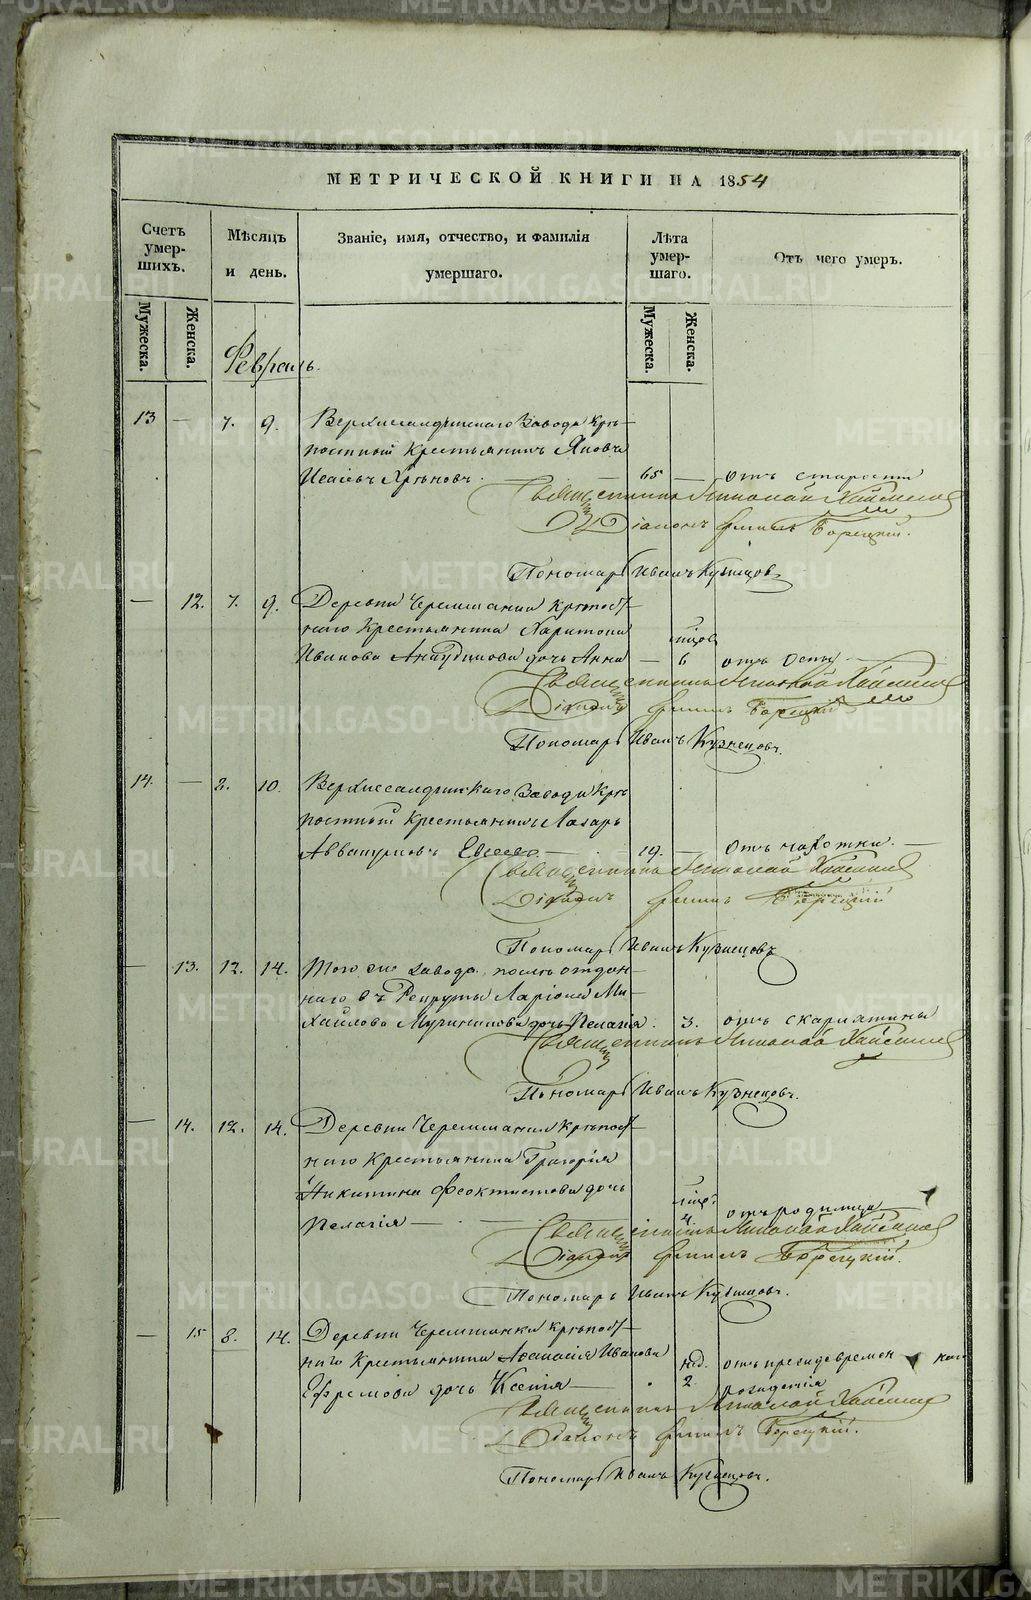 МЕТРИЧЕСКОЙ КНИГИ НА 1854
Счетъ умер-шихъ.
Мѣсяцъ и день.
Званіе, имя, отчество, и фамилія умершаго.
Лѣта умер-шаго.
Отъ чего умеръ.
Мужеска.
Женска.
Мужеска.
Женска.
Февраль.
13 — 7. 9. Верхисеандинскаго Завода Крѣ-
постный Крестьянинъ Яковъ
65 — отъ старости
Священникъ Николай
Діаконъ Борецкій.
Пономарь Иванъ Кузнецовъ
— 12. 7. 9. Деревни Черемшанки крѣпост-
наго Крестьянина Харитона
мѣсяц.
Иванова дочь Анна — 6 отъ оспы
Священникъ Николай
Діаконъ Борецкій
Пономарь Иванъ Кузнецовъ.
14. — 2. 10. Завода Крѣ-
постный Крестьянинъ Лазарь
Аввакумовъ Евсеевъ — 19. — отъ чахотки.
Священникъ Николай
Діаконъ Борецкій
Пономарь Иванъ Кузнецовъ
— 13. 12. 14. Того же завода, отдан-
наго въ Рекруты Ларіона Ми-
хайлова дочь Пелагія. 3. отъ скарлатины
Священникъ Николай
Пономарь Иванъ Кузнецовъ.
— 14. 12. 14. Деревни Черемшанки крѣпост-
наго Крестьянина Григорія
Никитина Феоктистова дочь
Пелагія — 4. отъ родимца
Священникъ Николай
Діаконъ Борецкій.
Пономарь Иванъ Кузнецовъ.
— 15 8. 14. Деревни Черемшанки крѣпост-
наго Крестьянина Афанасія Иванова
нед. отъ преждевремен наго
Ефремова дочь Ксенія — 2. рожденія
Священникъ Николай
Діаконъ Борецкій.
Пономарь Иванъ Кузнецовъ.
METRIKI.GASO-URAL.RU